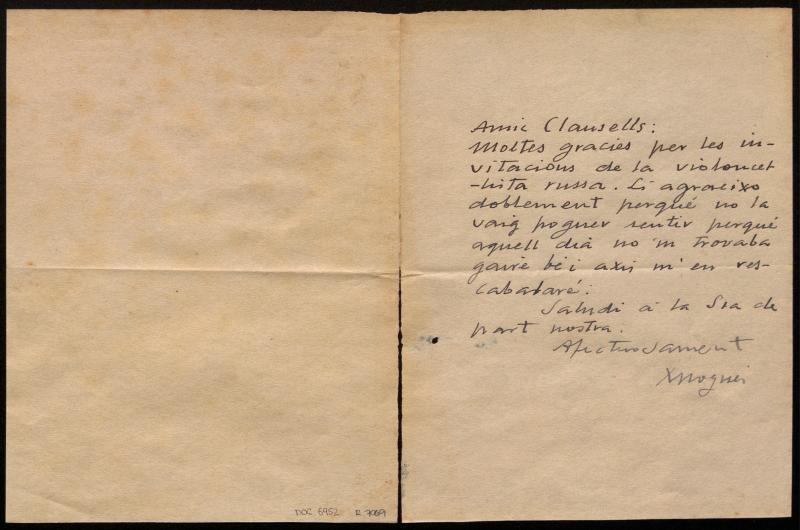 Amic Clausells:
Moltes gracies per les in-
vitacions de la violoncel-
-lista russa. Li agraeixo
doblement perqué no la
vaig poguer sentir perqué
aquell dia no 'm trovaba
gaire bé i axis m' en res-
cabalaré.
Saludi a la Sra de
part nostra.
Afectuosament
XNogués
DOC 6952 R 7069